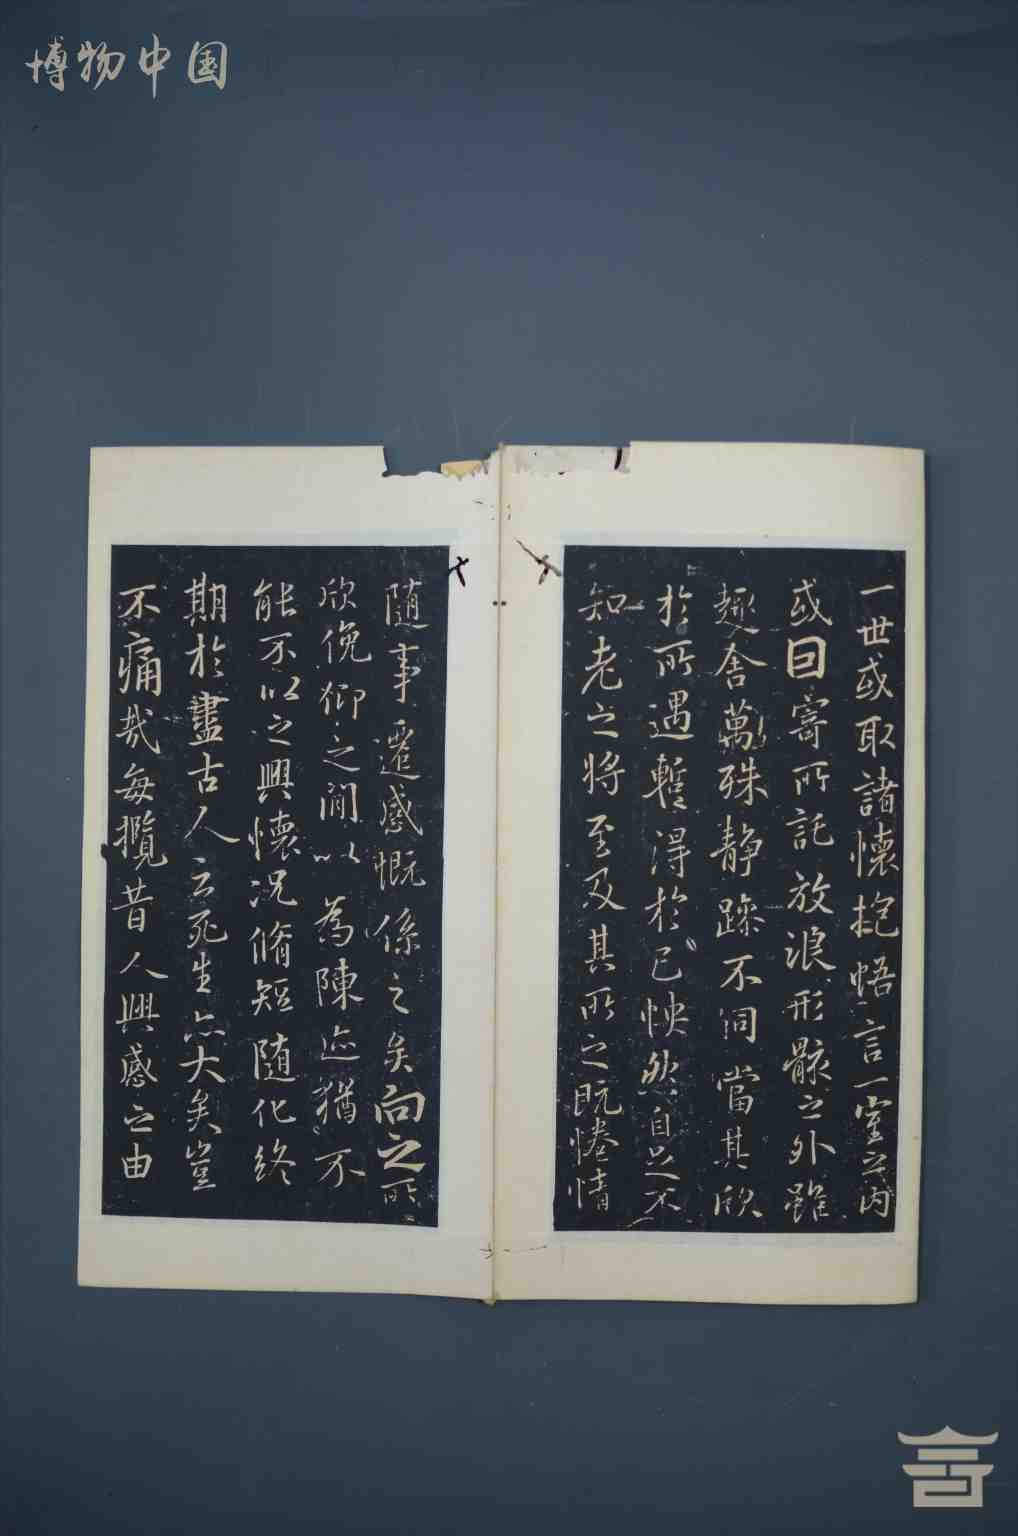 博物中国
一世或取諸懷抱悟言一室之內
或因寄所託放浪形骸之外雖
趣舍萬殊靜躁不同當其欣
於所遇蹔得於己怏然自足不
知老之將至及其所之既惓情
隨事遷感慨係之矣向之所
欣俛仰之閒以為陳迹猶不
能不以之興懷況脩短隨化終
期於盡古人云死生亦大矣豈
不痛哉每攬昔人興感之由